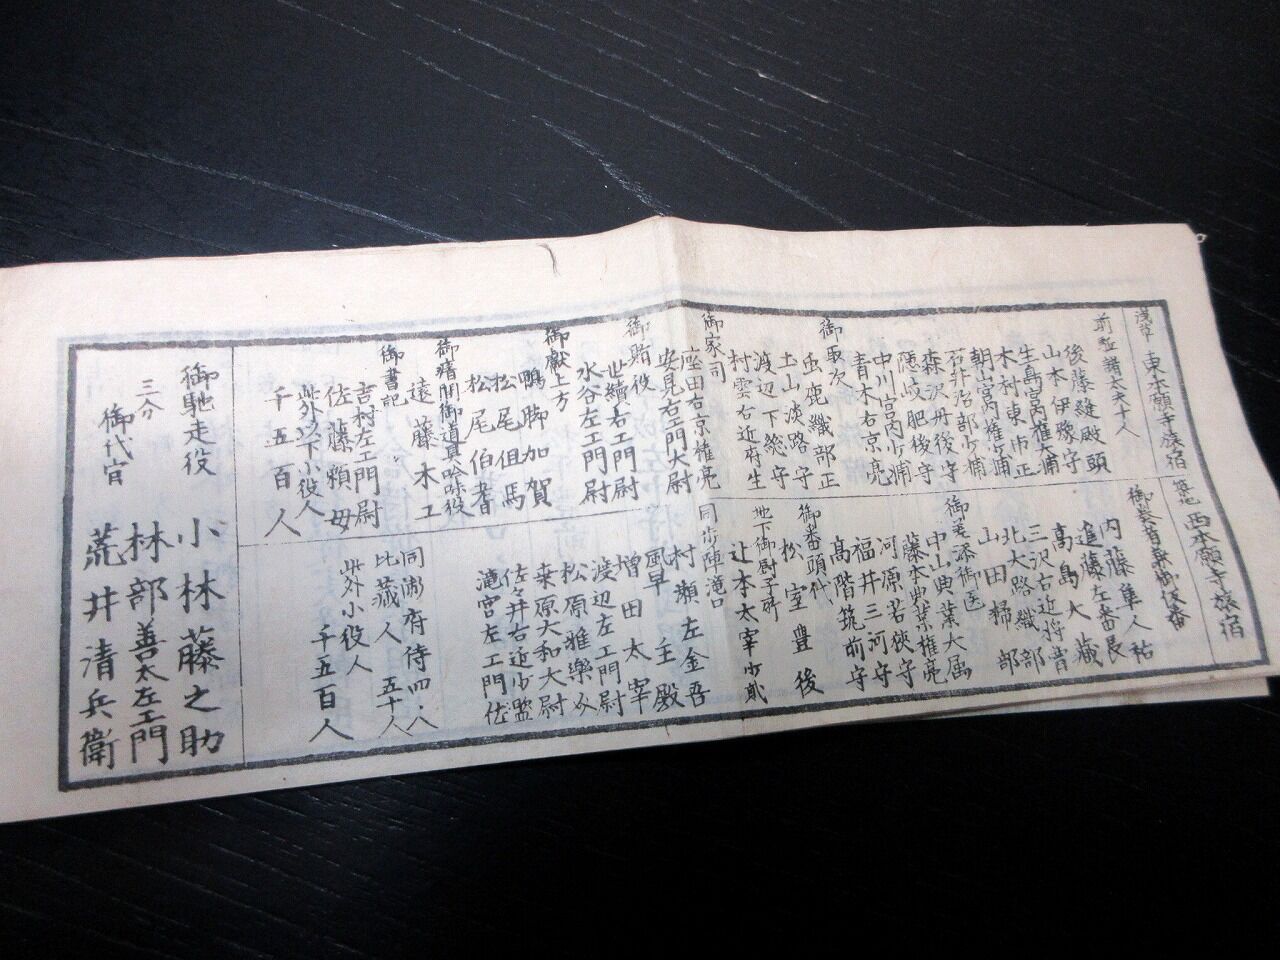 浅草 東本願寺旅宿
前駈諸大夫十人
後藤縫殿頭
山本伊豫守
生島宮内権大輔
木村東市正
朝山宮内権少輔
石井治部少輔
森沢丹後守
隠岐肥後守
中川宮内少輔
青木右京亮
御取次
鹿織部正
土山淡路守
渡辺下総守
村雲右近府生
御家司
座田右京権亮
安見右エ門大尉
御賄役
世續右エ門尉
水谷左エ門尉
御献上方
鴨脚加賀
松尾但馬
松尾伯耆
御瘡間御道具吟味役
遠藤木工
御書記
吉村左エ門尉
佐藤頼母
此外以下小役人
千五百人
築地 西本願寺旅宿
内藤隼人祐
進藤左番長
高島大藏
三沢右近将曹
北大路織部
山田掃部
御差添御医
中山典薬大属
藤木典薬権亮
河原若狭守
福井三河守
高階筑前守
御番頭代
松室豊後
地下御厨子所
辻本太宰少貳
同歩陣滝口
村瀬左金吾
風早主殿
増田太宰
渡辺左エ門尉
松原雅樂以
桒原大和大尉
佐々井右近少監
滝宮左エ門佐
同衛府侍四八
比藏人五十人
此外小役人
千五百人
御馳走役
小林藤之助
三分
林部善太左エ門
御代官
荒井清兵衛